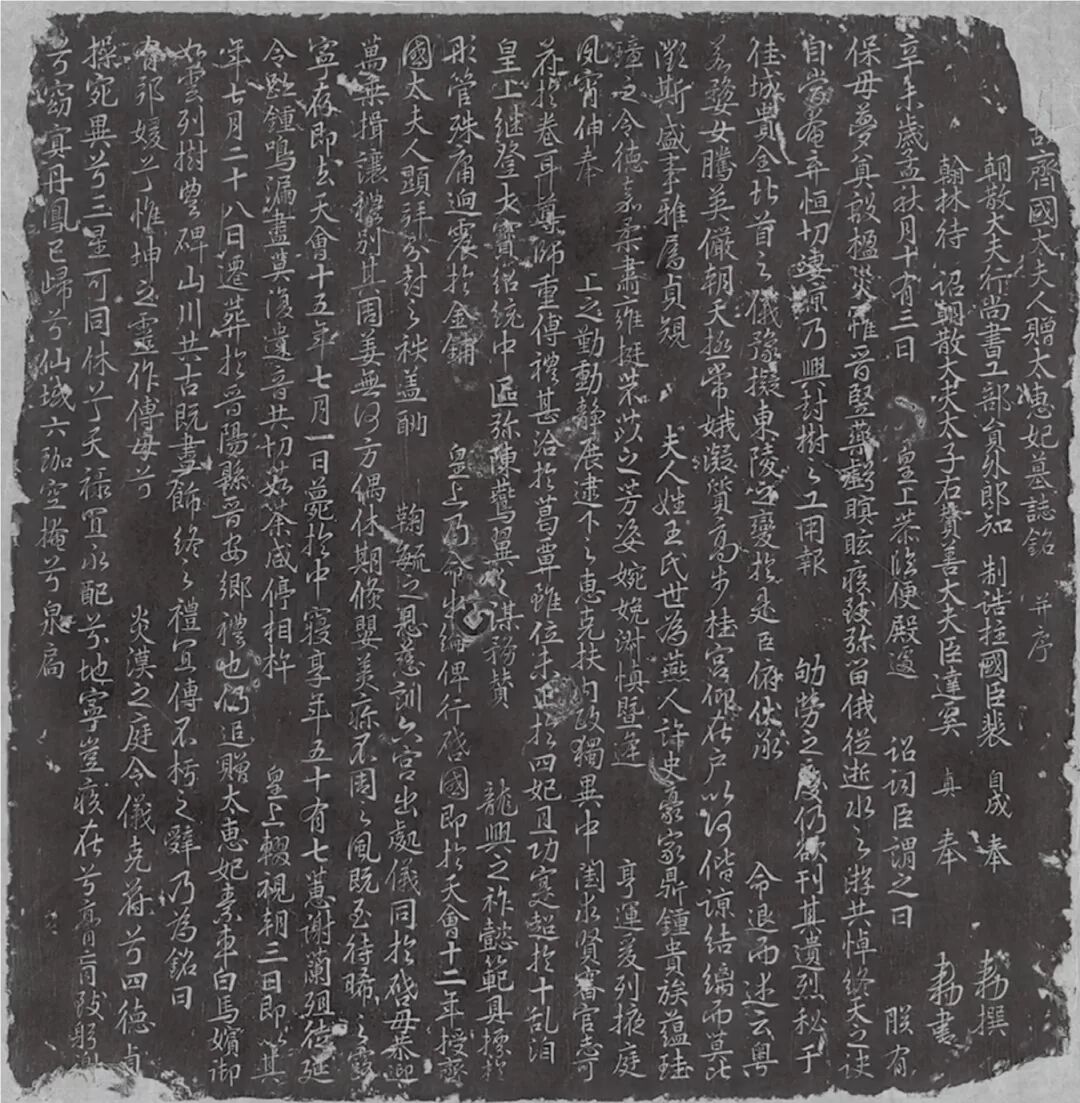 齊國太夫人贈太惠妃墓誌銘 并序
朝散大夫行尚書工部員外郎知 制誥柱國臣裴 自成奉 勑撰
翰林待 詔朝散大夫太子右贊善大夫臣達奚 真 奉 勑書
辛未歲孟秋月十有三日 皇上恭臨便殿遽 詔詞臣謂之曰 朕有
保母夢真設榲災罹晉竪藥虧瞑眩疾致弥留俄從逝水之游共悼終天之訣
自嘗奄弃恒切凄凉乃興封樹之工用報 劬勞之慶仍欲刊其遺烈秘于
佳城貴全北首之儀豫擬東陵之變於是臣俯伏承 命退而述云粤
若婺女騰英儼朝天極常娥凝質高步桂宮仰在戶以何偕諒結褵而莫比
歟斯盛事雅屬貞規 夫人姓王氏世為燕人許史豪家鼎鐘貴族蘊珪
璋之令德嘉柔肅雍挺茱苡之芳姿婉娩淑慎暨逢 亨運爰列掖庭
夙宵伸奉 上之勤動靜展逮下之惠克扶內政獨異中 闈求賢審官志可
存於卷耳尊師重傅禮甚洽於葛覃雖位未正於四妃且功寔超於十乱洎
皇上继登大寶紹統中區弥陳鷰翼之謀務贊 龍興之祚懿範具標於
彤管殊庸迥震於金鏞 皇上乃命出綸俾行啓國即於天會十二年授齊
國太夫人顯詳分封之秩盖酬 鞠毓之恩慈訓六宮出處儀同於啓母恭迎
萬乘揖讓禮別其周姜無何方偶休期倏嬰美疢不周之風既至待晞之露
寧存即去天會十五年七月一日薨於中寢享年五十有七蕙謝蘭殂徒延
令問鍾鳴漏盡莫復遺音共切茹荼咸停相杵 皇上輟視朝三日即以其
年七月二十八日遷葬於晉陽縣晉安鄉禮也仍追贈太惠妃素車白馬嬪御
如雲列樹豐碑山川共古既盡飾終之禮宜傳不朽之辭乃為銘曰
有邠媛兮惟坤之靈作傅母兮 炎漢之庭令儀克荷兮四德 貞
操宛異兮三星可同休兮天祿宜永配兮地寧豈疾在兮膏肓致躬謝
兮窈冥丹鳳已歸兮仙城六珈空掩兮泉扃